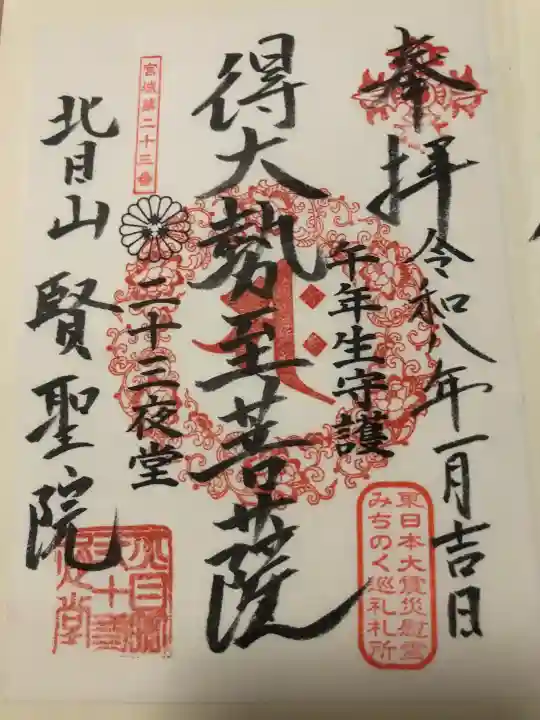 奉拝
令和八年一月吉日
東日本大震災慰霊
みちのく巡礼札所
午年生守護
得大勢至菩薩
宮城第二十三番
二十三夜堂
北日山 賢聖院